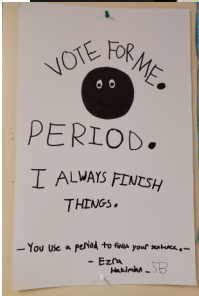 VOTE FOR ME.
PERIOD.
I ALWAYS FINISH
THINGS.
— You use a period to finish your sentence. —
- Ezra
Hakimian - 5B